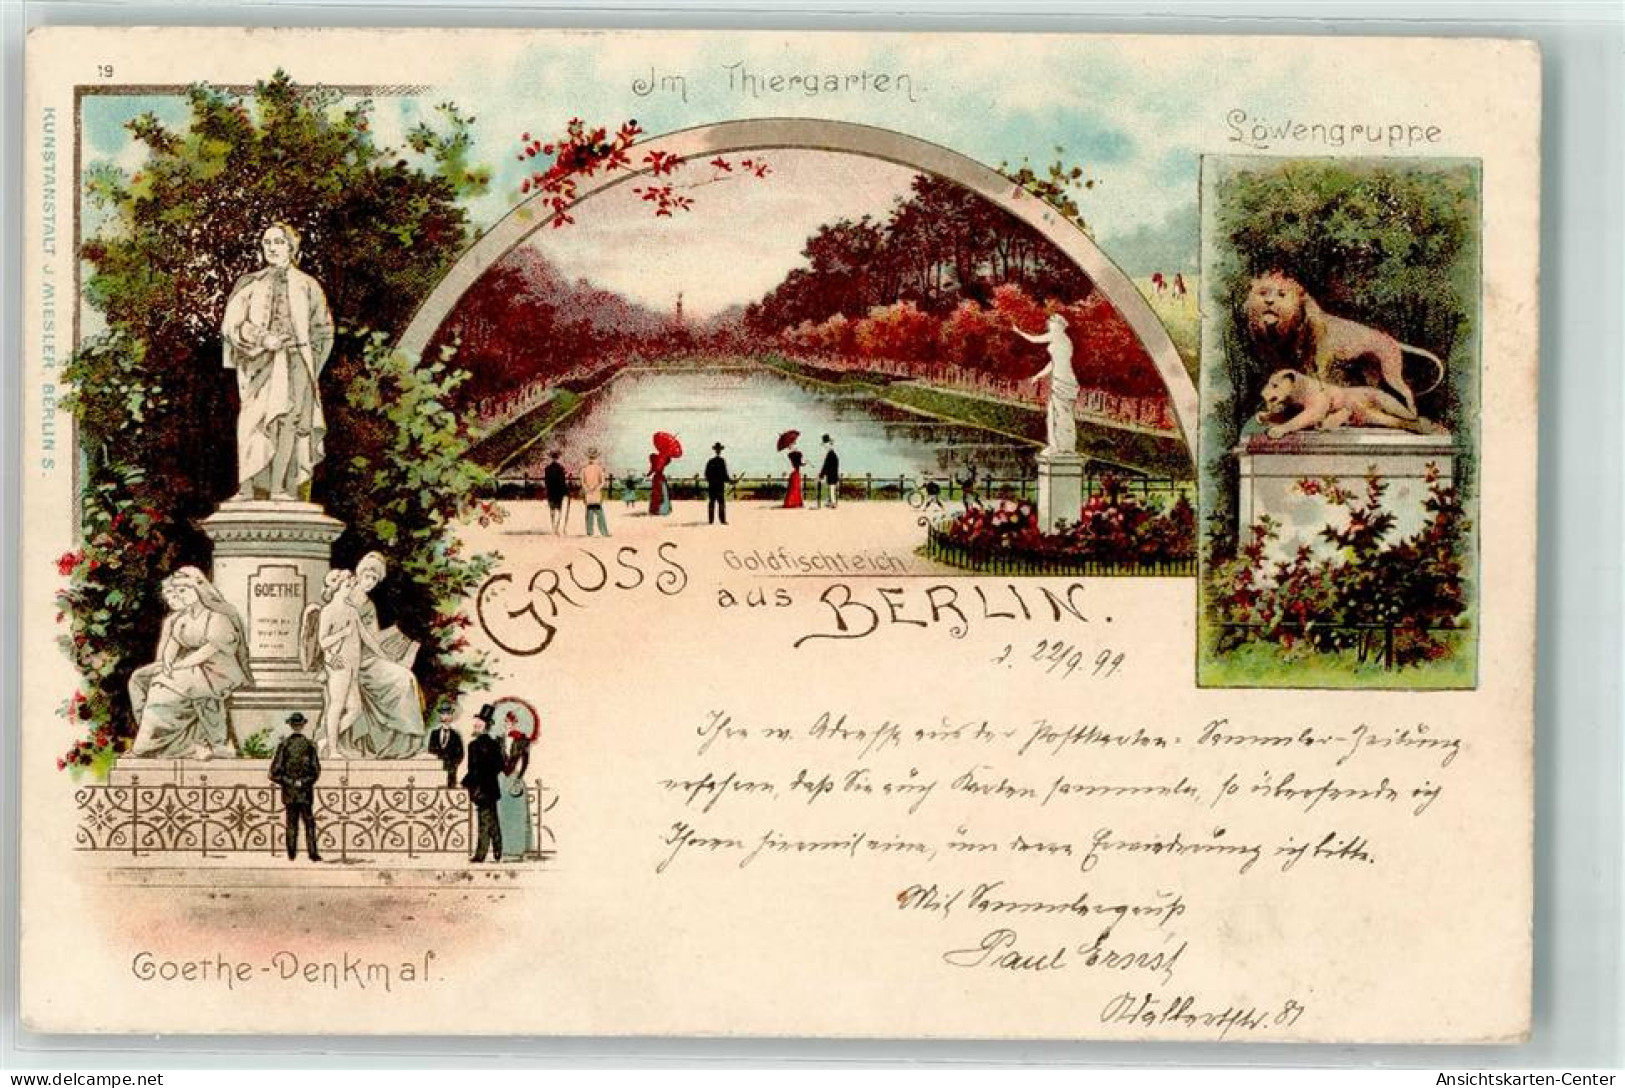 19
KUNSTANSTALT J. MIESLER BERLIN S.
Im Thiergarten.
Löwengruppe
GOETHE
Goldfischteich
GRUSS aus BERLIN.
d. 22/9. 99.
Ihre w. Adresse aus der Postkarten-Sammler-Zeitung
erfahren, daß Sie auch Karten sammeln, so übersende ich
Ihnen hiermit eine, um deren Erwiederung ich bitte.
Mit Sammlergruß
Paul Ernst
Adalbertstr. 81
Goethe-Denkmal.
Ansichtskarten-Center